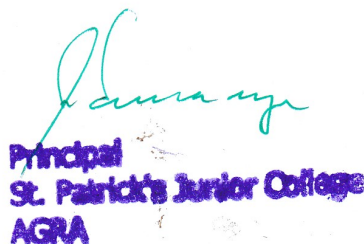 Principal
St. Patrick's Junior College
AGRA